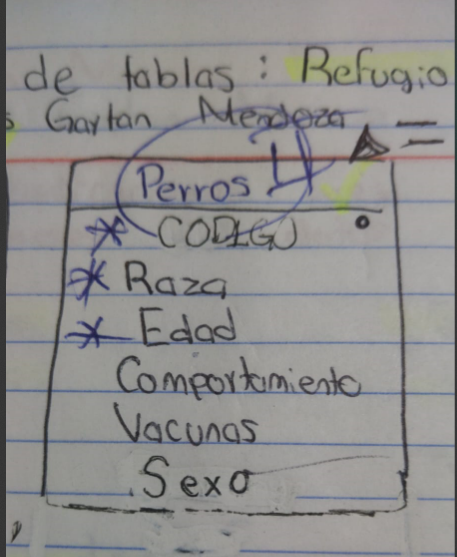 de tablas: Refugio
Gaytan Mendoza
Perros 4
* CODIGO
* Raza
* Edad
Comportamiento
Vacunas
Sexo